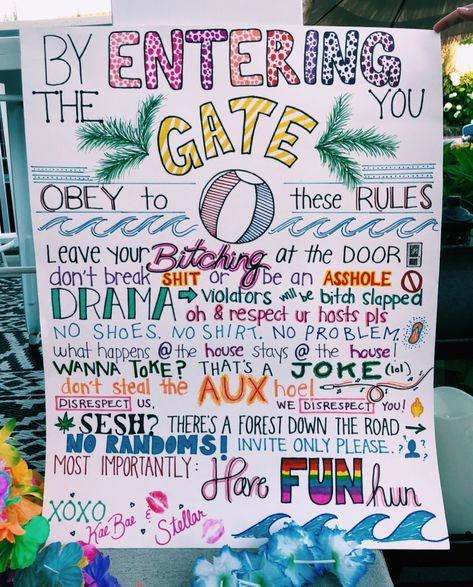 BY ENTERING
THE GATE YOU
OBEY to these RULES
Leave your Bitching at the DOOR
don't break SHIT or be an ASSHOLE
DRAMA → violators will be bitch slapped
oh & respect ur hosts pls
NO SHOES. NO SHIRT. NO PROBLEM.
what happens @ the house stays @ the house!
WANNA TOKE? THAT'S A JOKE (lol)
don't steal the AUX hoe!
DISRESPECT US, WE DISRESPECT YOU!
SESH? THERE'S A FOREST DOWN THE ROAD →
NO RANDOMS! INVITE ONLY PLEASE. ?
MOST IMPORTANTLY: Have FUN hun
XOXO
Kae Bae & Stellar